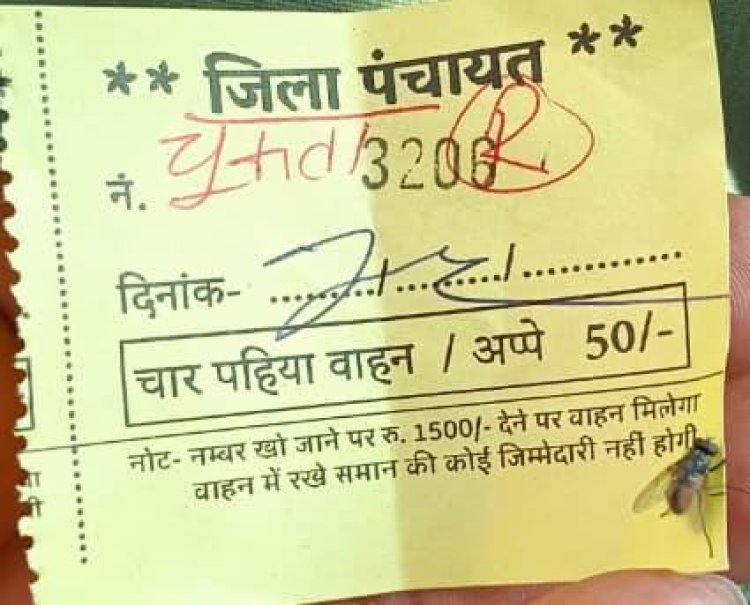 ** जिला पंचायत **
नं. 3206
दिनांक- ........./........./...............
चार पहिया वाहन / अप्पे 50/-
नोट- नम्बर खो जाने पर रु. 1500/- देने पर वाहन मिलेगा
वाहन में रखे समान की कोई जिम्मेदारी नहीं होगी